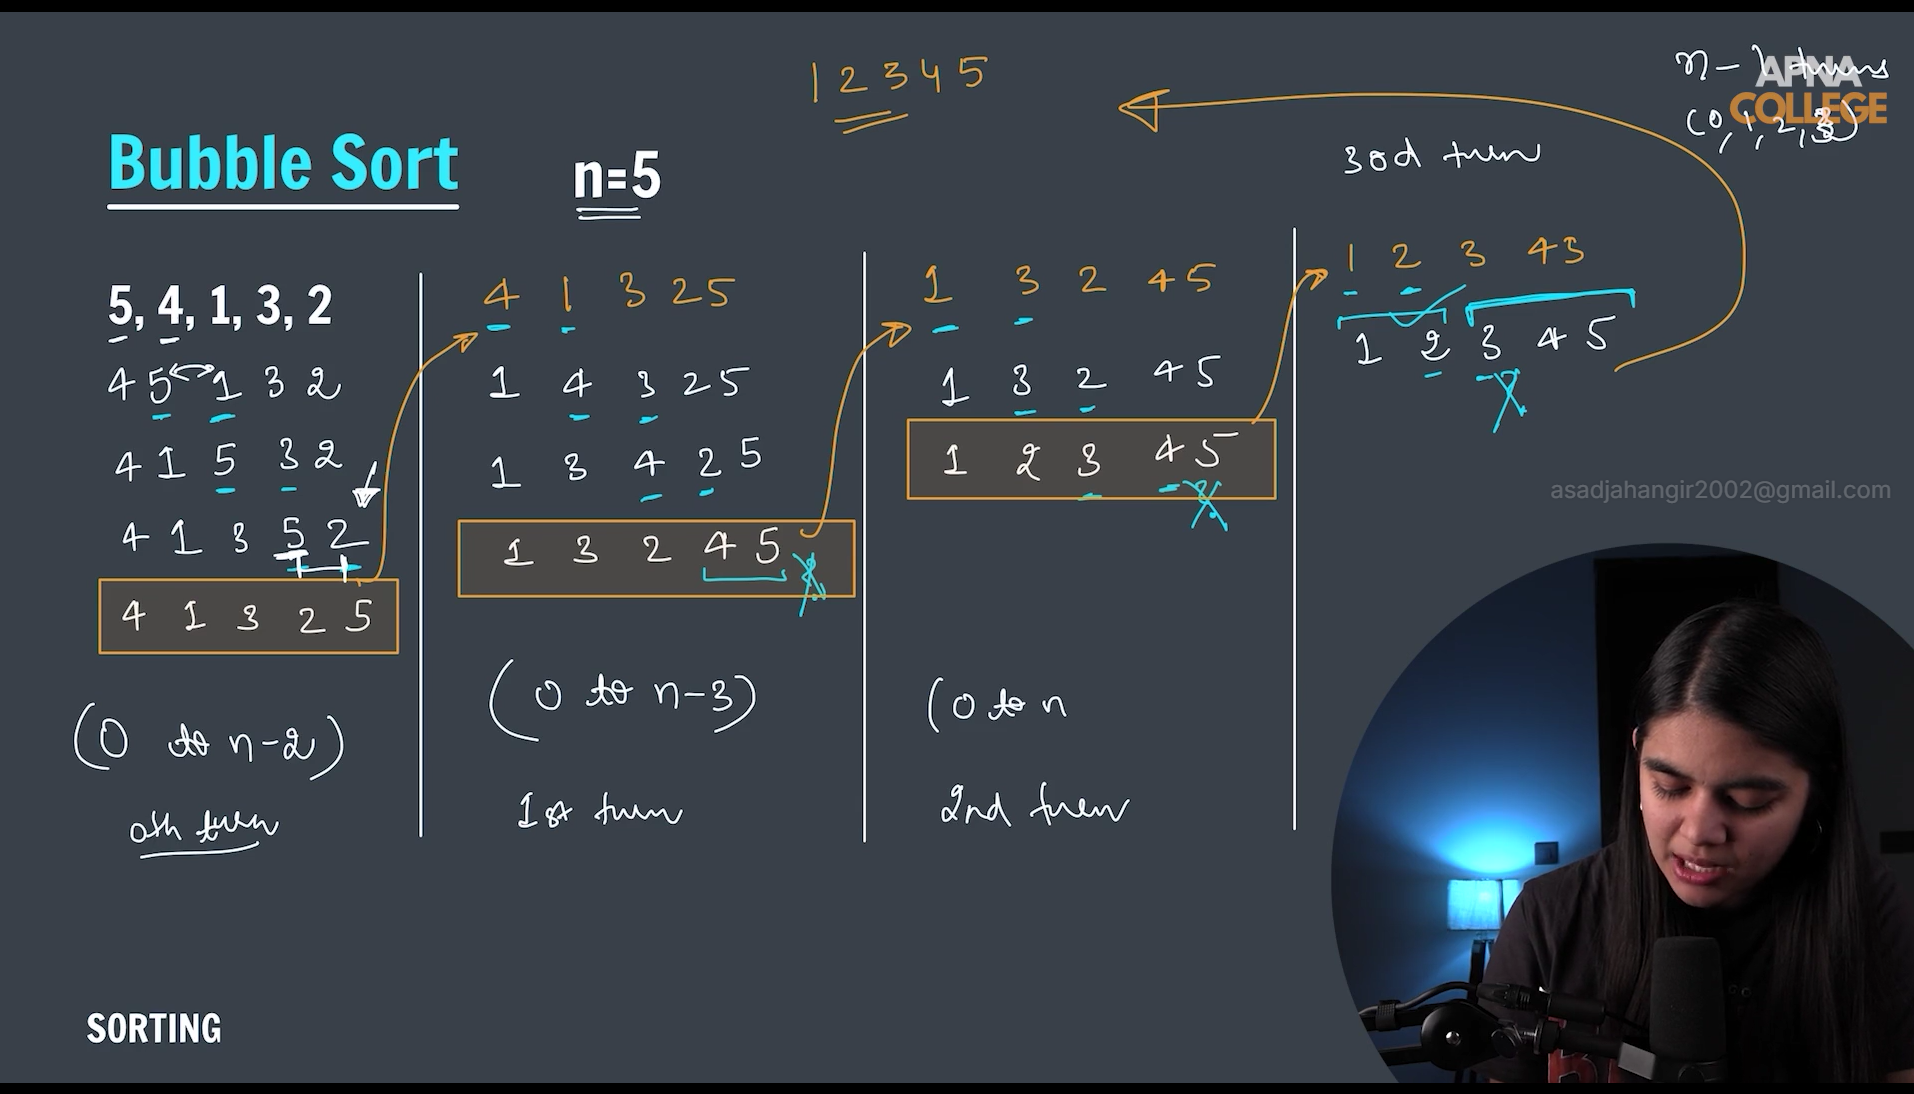 1 2 3 4 5
n-1 turns
APNA
COLLEGE
(0, 1, 2, 3)
Bubble Sort
n=5
5, 4, 1, 3, 2
4 5 1 3 2
4 1 5 3 2
4 1 3 5 2
4 1 3 2 5
(0 to n-2)
0th turn
4 1 3 2 5
1 4 3 2 5
1 3 4 2 5
1 3 2 4 5
(0 to n-3)
1st turn
1 3 2 4 5
1 3 2 4 5
1 2 3 4 5
(0 to n
2nd turn
3rd turn
1 2 3 4 5
1 2 3 4 5
asadjahangir2002@gmail.com
SORTING